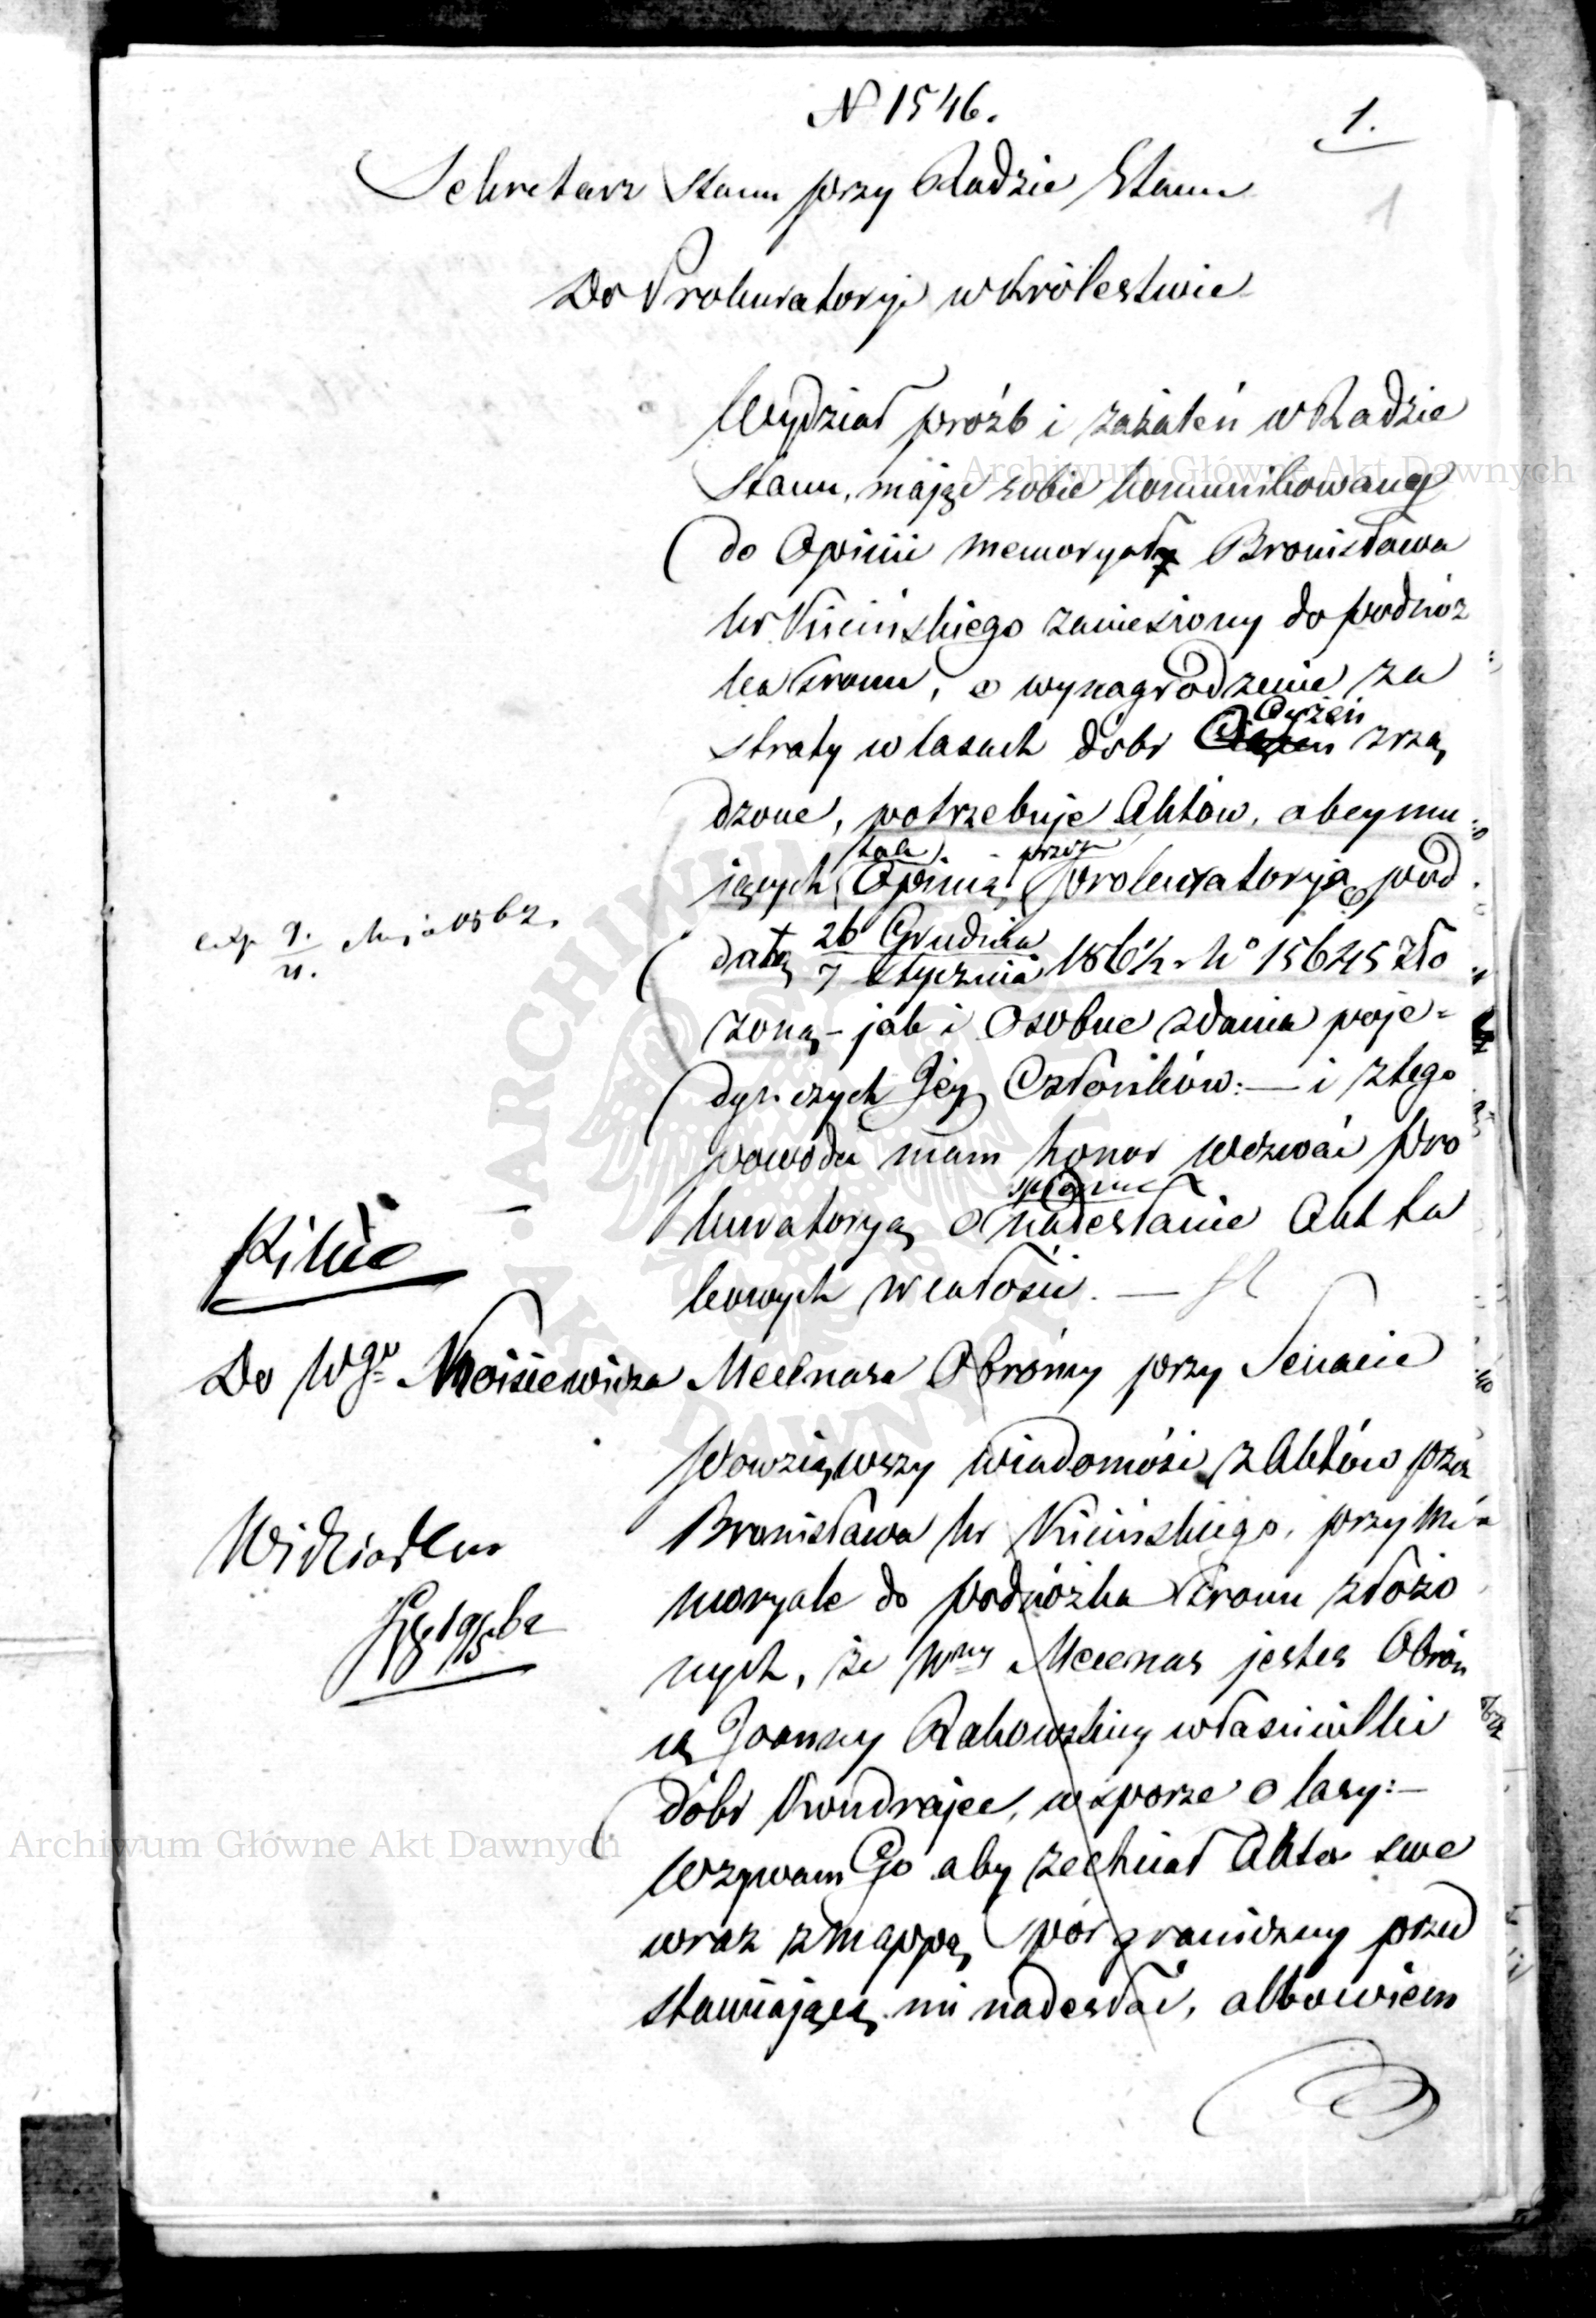 N 1546.
1.
1
Sekretarz Stanu przy Radzie Stanu
Do Prokuratoryi w Królestwie
Wydział próźb i zażaleń w Radzie
Stanu, mając sobie komunikowany
do Opinii memoryał Bronisława
hr Kicińskiego zaniesiony do podnóż
ka tronu, o wynagrodzenie za
straty w lasach dóbr Oryżeń zrzą
dzone, potrzebuje Aktów, obeymu
iących tak Opinią przez Prokuratoryą pod
datą 26 Grudnia / 7 Stycznia 186½ No 15645 zło
żoną – jak i Osobne zdania poje=
dyńczych Jey Członków: — i z tego
powodu mam honor wezwać Pro
kuratoryą o spieszne nadesłanie Akt ta
kowych w całości. —
exp 9./11. Maja 1862.
Do Wgo Mecenasa Obrońcy przy Senacie
Powziąwszy wiadomość z Aktów przez
Bronisława hr Kicińskiego, przy me
moryale do podnóżka tronu złożo
nych, że Wny Mecenas jesteś Obroń
cą Joanny Rakowskiey właścicielki
dóbr, w sporze o lasy: —
Wzywam Go aby zechciał Akta swe
wraz z mappą spór graniczny przed
stawiającą mi nadesłać, albowiem
Widziałem
Archiwum Główne Akt Dawnych
Archiwum Główne Akt Dawnych
ARCHIWUM GŁÓWNE AKT DAWNYCH